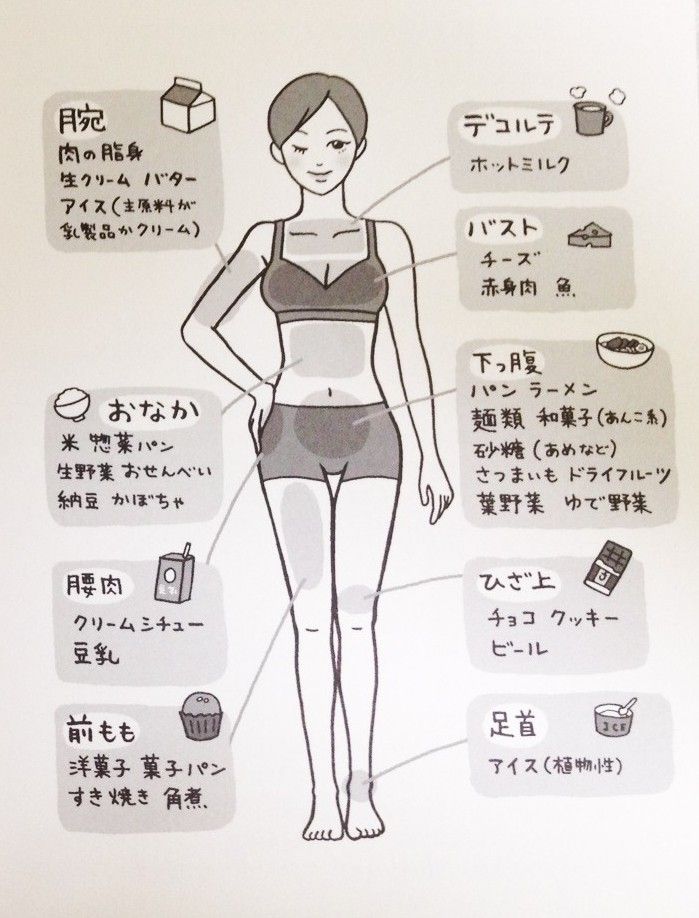 腕
肉の脂身
生クリーム バター
アイス(主原料が
乳製品かクリーム)
デコルテ
ホットミルク
バスト
チーズ
赤身肉 魚
おなか
米 惣菜パン
生野菜 おせんべい
納豆 かぼちゃ
下っ腹
パン ラーメン
麺類 和菓子(あんこ系)
砂糖(あめなど)
さつまいも ドライフルーツ
葉野菜 ゆで野菜
腰肉
豆乳
クリームシチュー
豆乳
ひざ上
チョコ クッキー
ビール
前もも
洋菓子 菓子パン
すき焼き 角煮
足首
ICE
アイス(植物性)